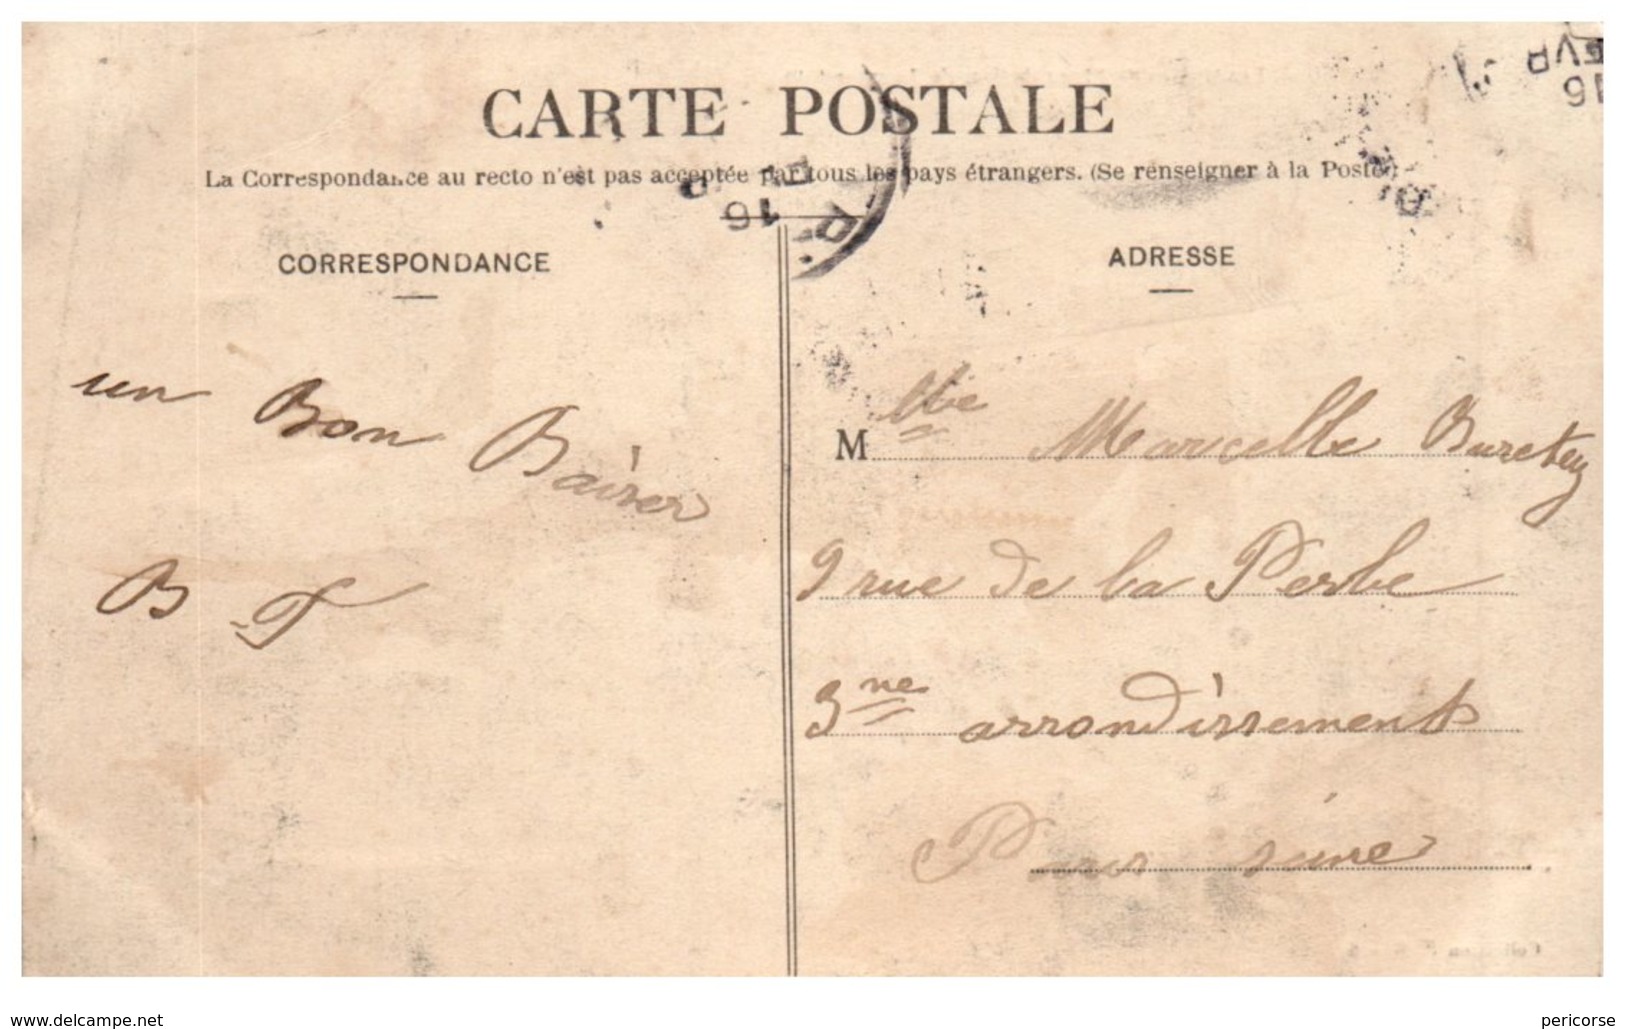 CARTE POSTALE
La Correspondance au recto n'est pas acceptée par tous les pays étrangers. (Se renseigner à la Poste)
CORRESPONDANCE
ADRESSE
un Bon Baiser
B T
M lle Marcelle Buretey
9 rue de la Perle
3me arrondissement
Paris sine
16
EVR
16
www.delcampe.net
pericorse